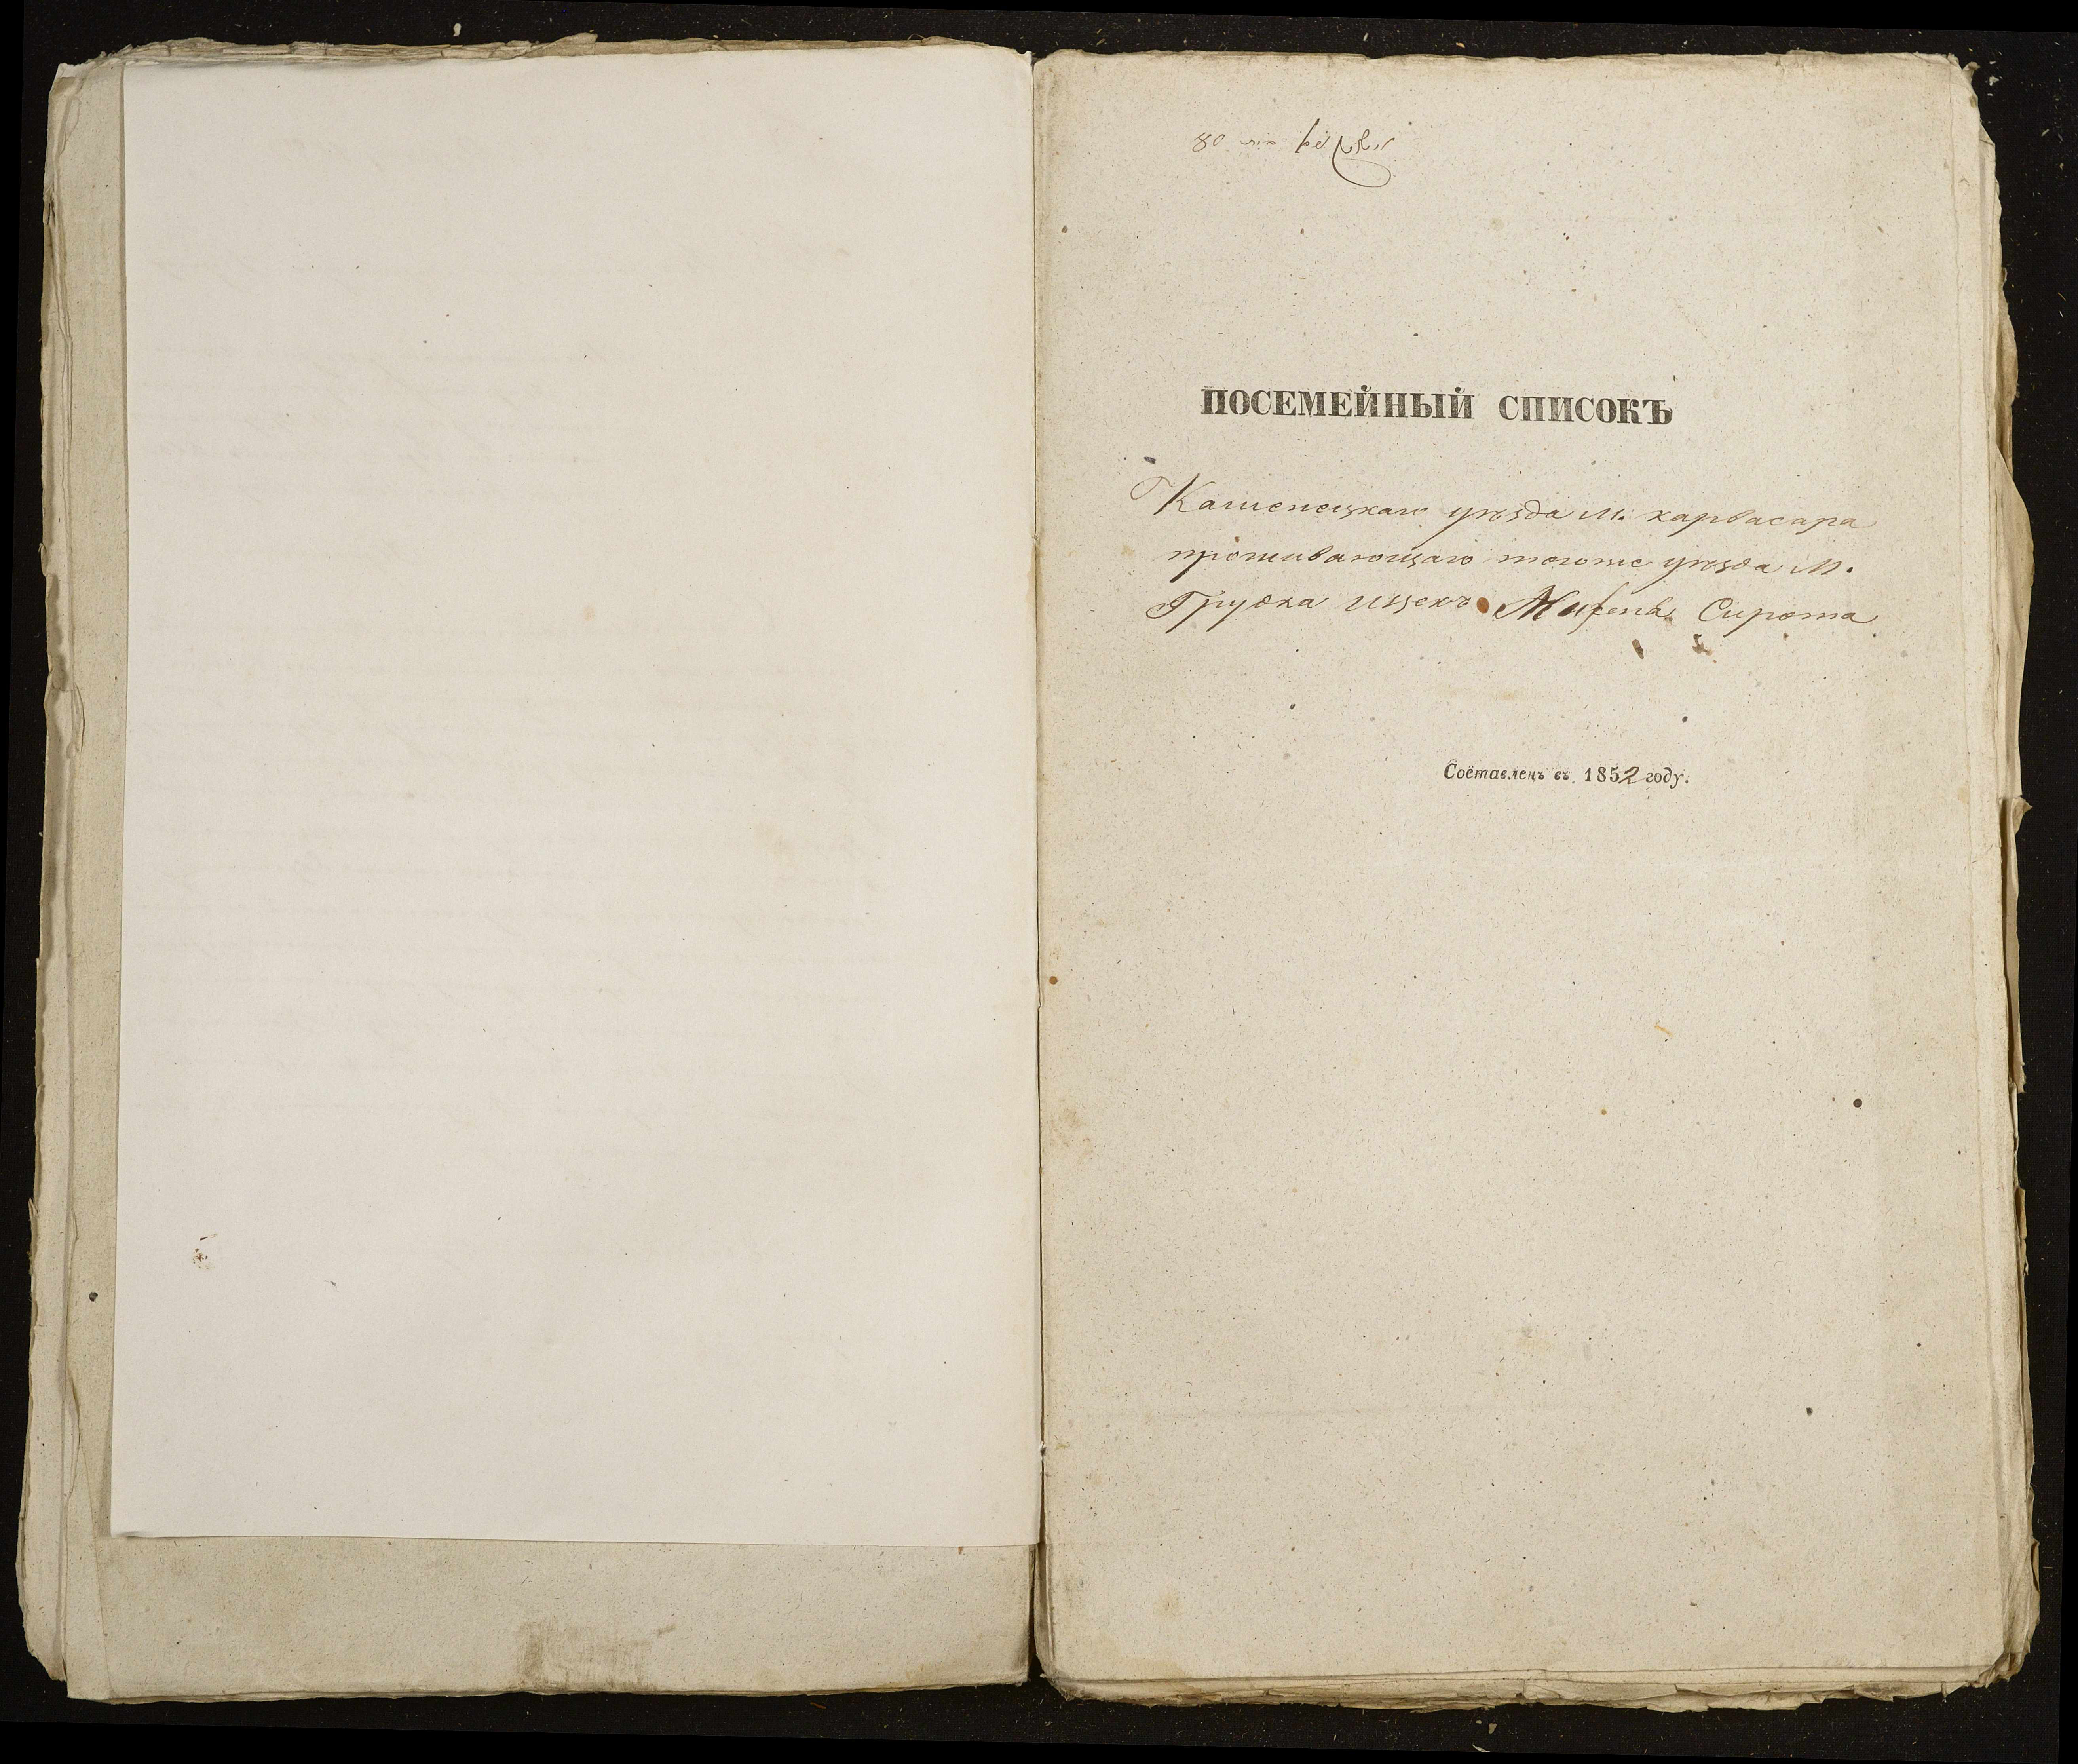 ПОСЕМЕЙНЫЙ СПИСОКЪ
Каменецкаго уѣзда м. карвасара
проживающаго тогоже уѣзда м.
Грудка Ицекъ Сирота
Составленъ въ 1852 году.